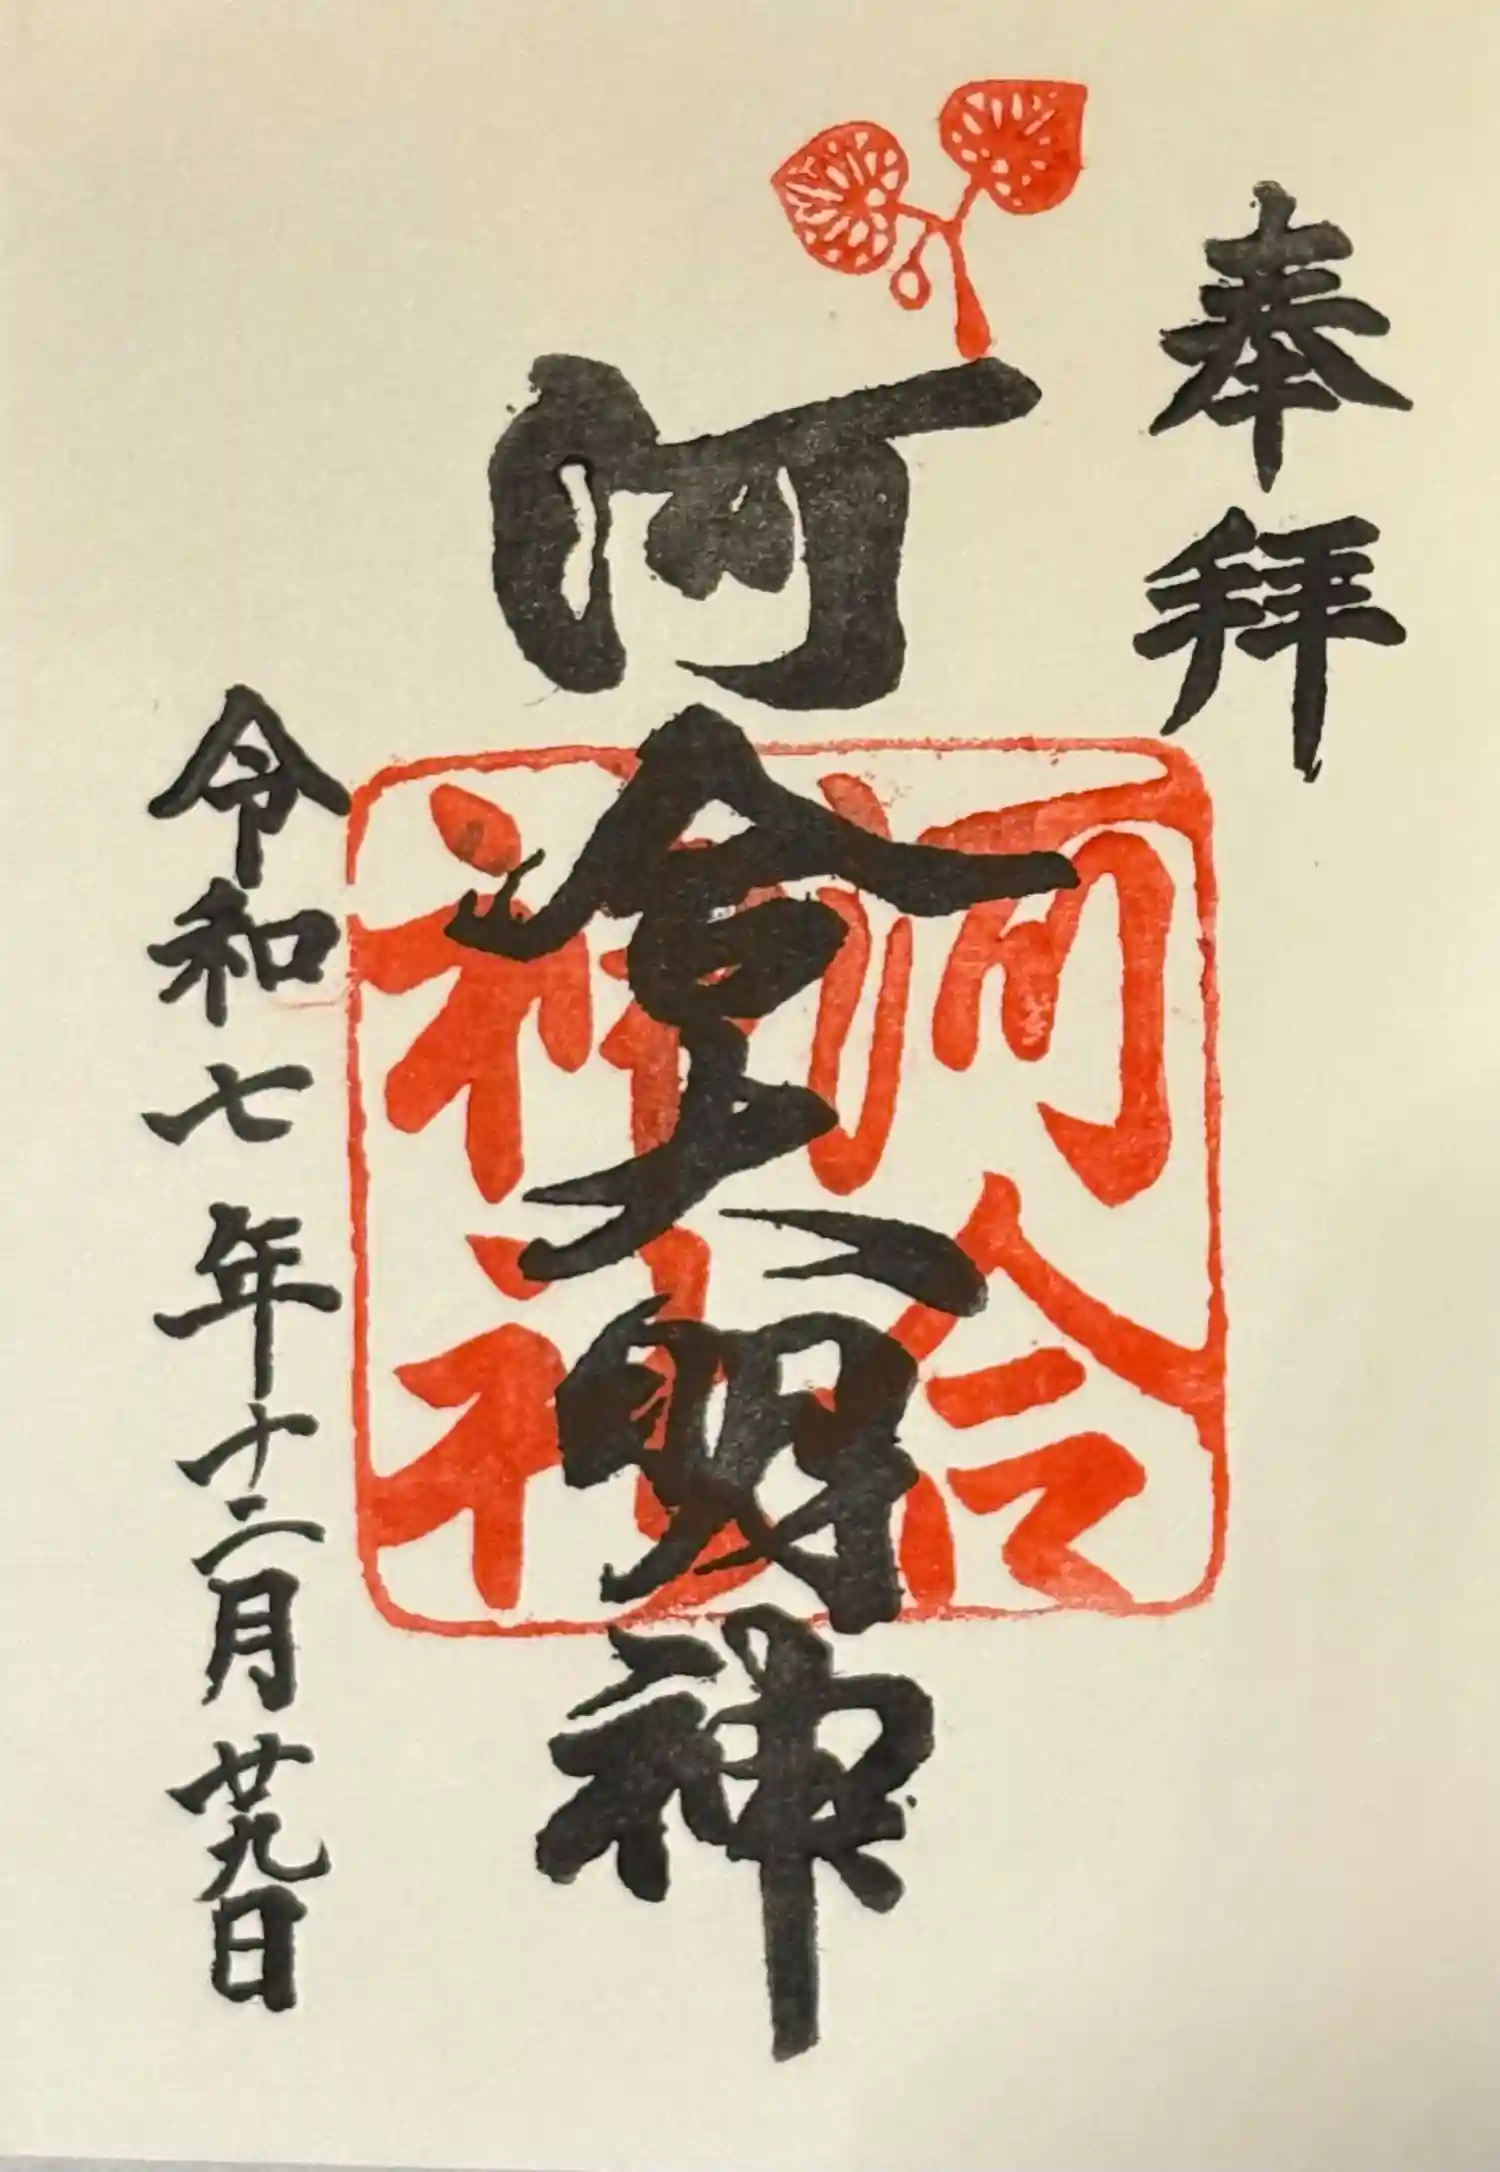 奉拝
河合大明神
河合
神社
令和七年十二月廿九日